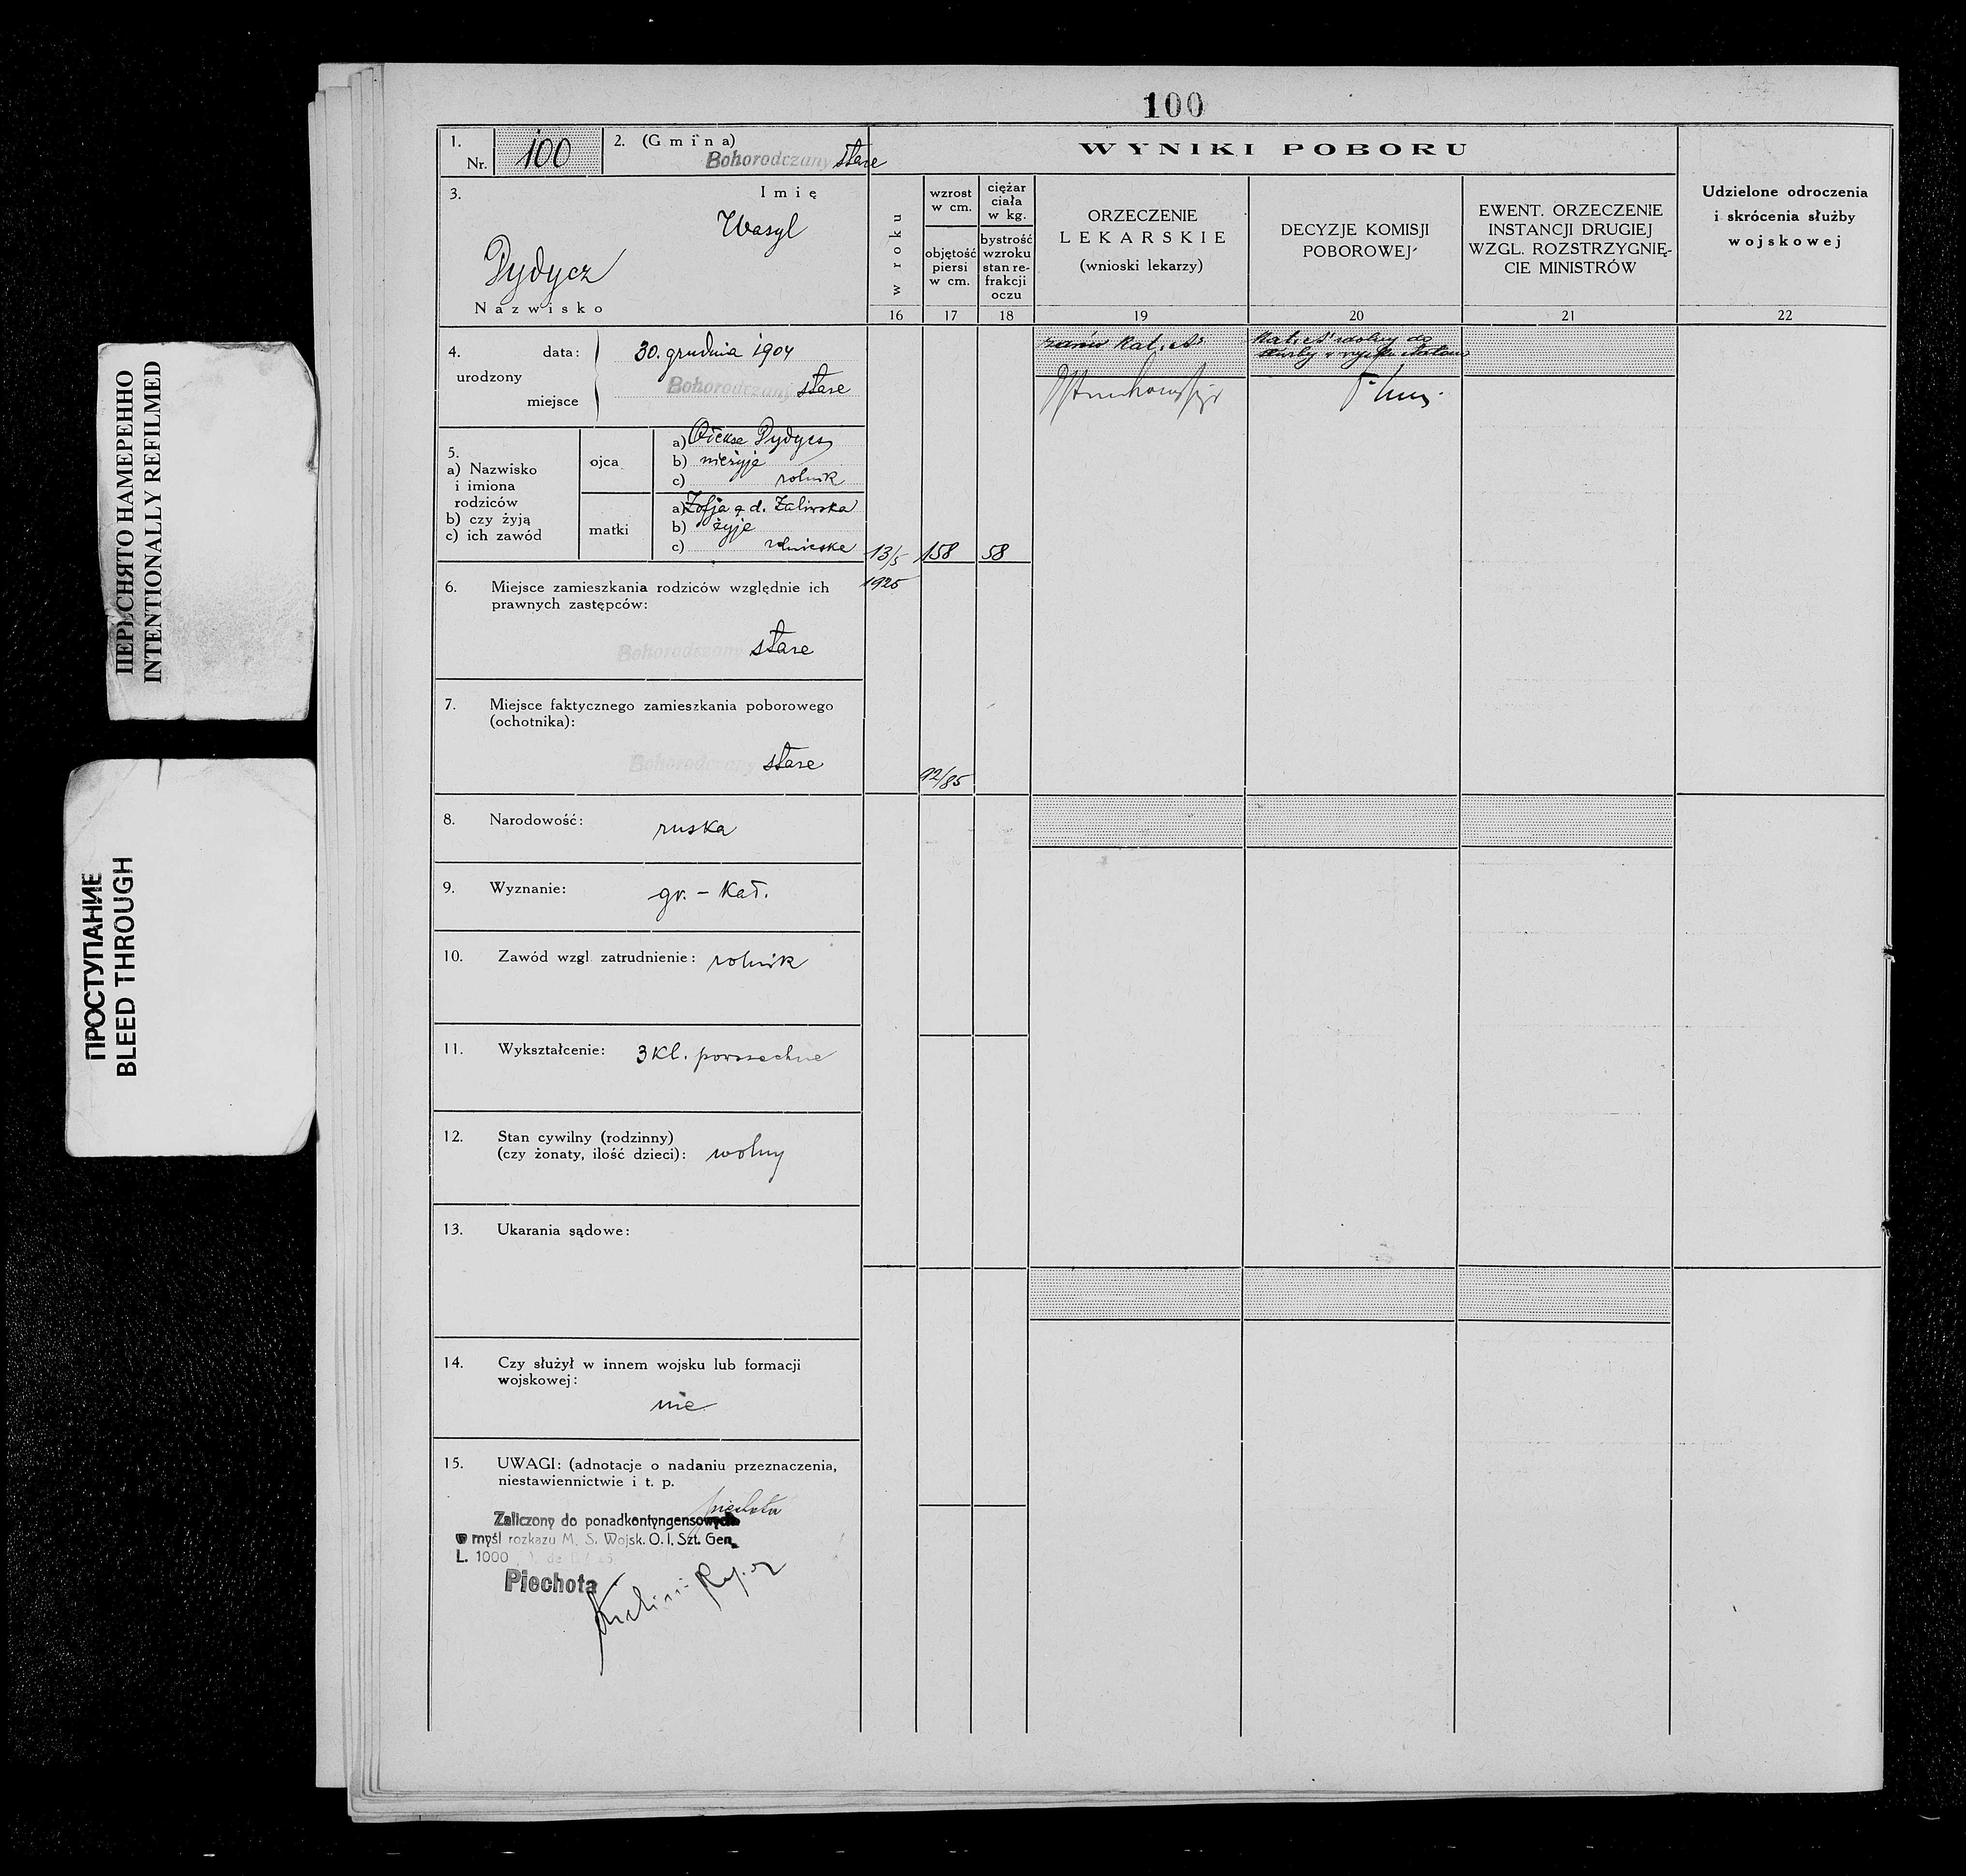 100
1.
Nr. 100
2. (Gmina)
Bohorodczany stare
3.
Imię
Wasyl
Dydycz
Nazwisko
WYNIKI POBORU
w roku
wzrost
w cm.
objętość
piersi
w cm.
ciężar
ciała
w kg.
bystrość
wzroku
stan re-
frakcji
oczu
ORZECZENIE
LEKARSKIE
(wnioski lekarzy)
DECYZJE KOMISJI
POBOROWEJ
EWENT. ORZECZENIE
INSTANCJI DRUGIEJ
WZGL. ROZSTRZYGNIĘ-
CIE MINISTRÓW
Udzielone odroczenia
i skrócenia służby
wojskowej
16 17 18 19 20 21 22
4.
urodzony
data: 30. grudnia 1904
miejsce Bohorodczany stare
kat. A
Kat. A zdolny do
służby w
5.
a) Nazwisko
i imiona
rodziców
b) czy żyją
c) ich zawód
ojca
a) Ołeksa Dydycz
b) nieżyje
c) rolnik
matki
a) Zofja z d. Zaliwska
b) żyje
c) rolniczka
13/5
1925
158
58
92/85
6. Miejsce zamieszkania rodziców względnie ich
prawnych zastępców:
Bohorodczany stare
7. Miejsce faktycznego zamieszkania poborowego
(ochotnika):
Bohorodczany stare
8. Narodowość: ruska
9. Wyznanie: gr. - kat.
10. Zawód wzgl. zatrudnienie: rolnik
11. Wykształcenie: 3 kl. powszechne
12. Stan cywilny (rodzinny)
(czy żonaty, ilość dzieci): wolny
13. Ukarania sądowe:
14. Czy służył w innem wojsku lub formacji
wojskowej:
nie
15. UWAGI: (adnotacje o nadaniu przeznaczenia,
niestawiennictwie i t. p.
piechota
Zaliczony do ponadkontyngensowych
w myśl rozkazu M. S. Wojsk. O. I. Szt. Gen.
L. 1000
Piechota
ПЕРЕСНЯТО НАМЕРЕННО
INTENTIONALLY REFILMED
ПРОСТУПАНИЕ
BLEED THROUGH